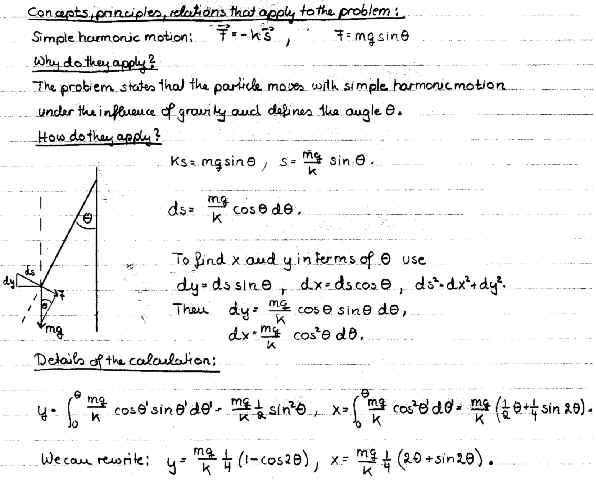 Concepts, principles, relations that apply to the problem:
Simple harmonic motion: F⃗ = -ks⃗ , F = mg sinθ
Why do they apply?
The problem states that the particle moves with simple harmonic motion
under the influence of gravity and defines the angle θ.
How do they apply?
ks = mg sinθ , s = mg/k sinθ.
ds = mg/k cosθ dθ.
θ
To find x and y in terms of θ use
ds
dy
F
θ
mg
dy = ds sinθ , dx = ds cosθ , ds² = dx² + dy².
Then dy = mg/k cosθ sinθ dθ,
dx = mg/k cos²θ dθ.
Details of the calculation:
y = ∫₀^θ mg/k cosθ' sinθ' dθ' = mg/k 1/2 sin²θ , x = ∫₀^θ mg/k cos²θ' dθ' = mg/k (1/2 θ + 1/4 sin 2θ).
We can rewrite: y = mg/k 1/4 (1 - cos2θ) , x = mg/k 1/4 (2θ + sin2θ).